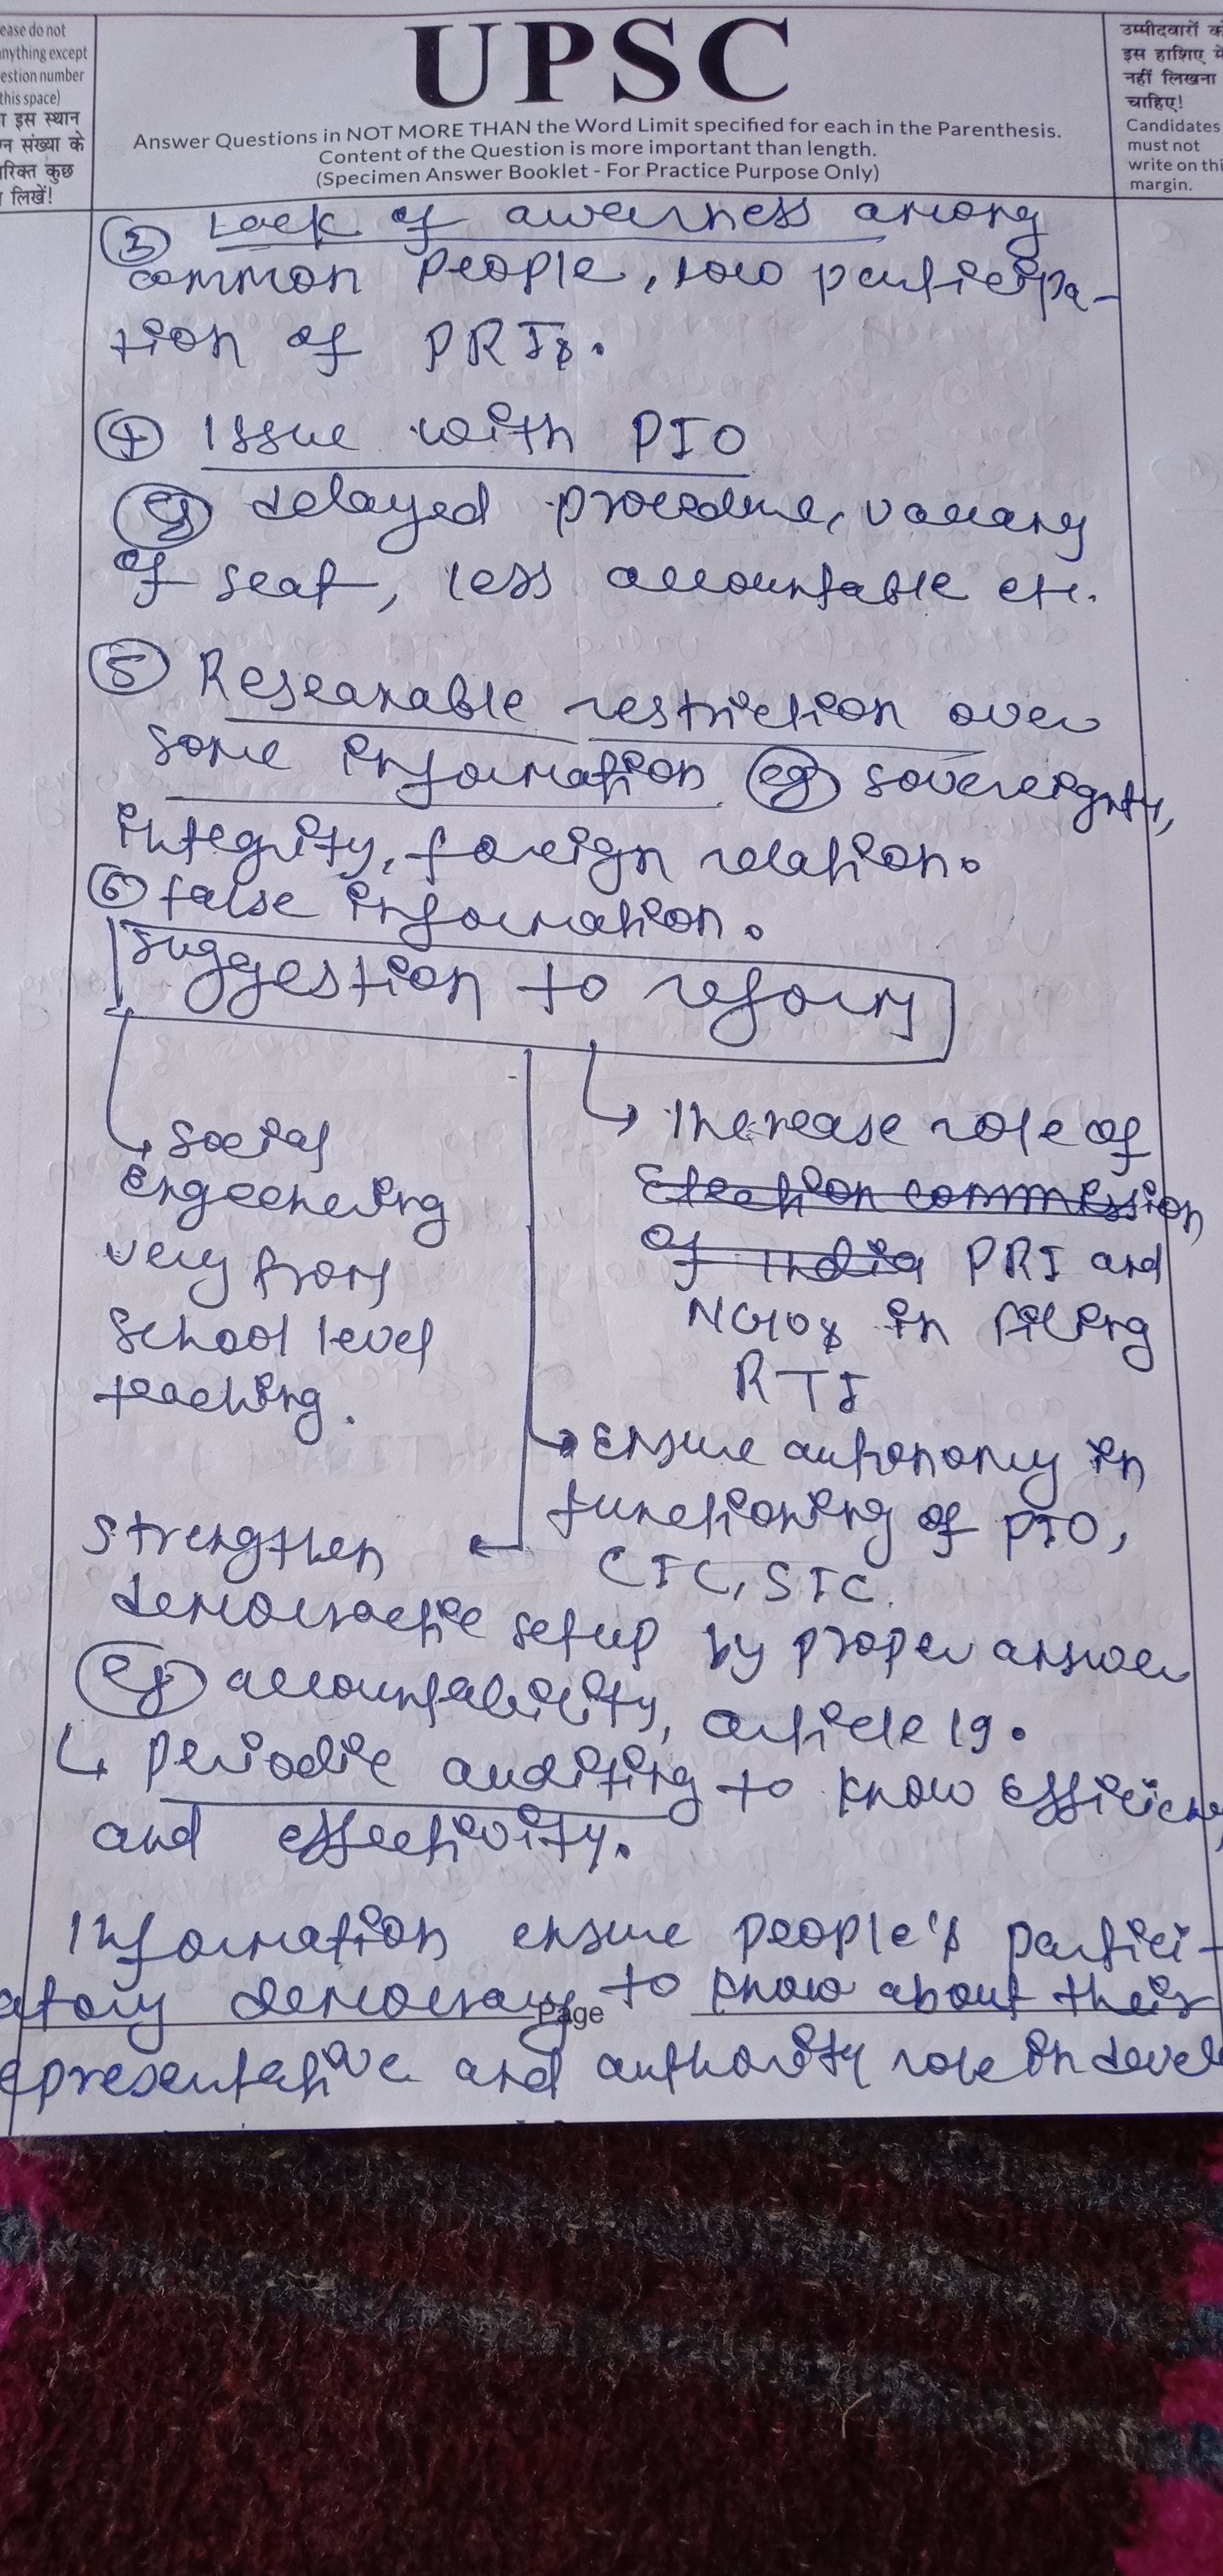 ease do not
anything except
estion number
this space)
ा इस स्थान
न संख्या के
रिक्त कुछ
लिखें!
UPSC
Answer Questions in NOT MORE THAN the Word Limit specified for each in the Parenthesis.
Content of the Question is more important than length.
(Specimen Answer Booklet - For Practice Purpose Only)
उम्मीदवारों क
इस हाशिए में
नहीं लिखना
चाहिए!
Candidates
must not
write on thi
margin.
③ Lack of awerness among
common people, low participa-
tion of PRIs.
④ Issue with PIO
eg delayed procedure, vacancy
of seat, less accountable etc.
⑤ Reseanable restriction over
some information eg sovereignty,
integrity, foreign relation.
⑥ false information.
Suggestion to reform
↳ Social
Engeenering
very from
School level
teaching.
↳ Increase role of
Election commission
of India PRI and
NGOs in filing
RTI
↳ Ensure autonomy in
functioning of PIO,
CIC, SIC.
Strengthen
democratic setup by proper answer
eg accountability, article 19.
↳ Periodic auditing to know efficien
and effectivity.
Information ensure people's partici-
atory democracy to know about their
Page
epresentative and authority role in devel